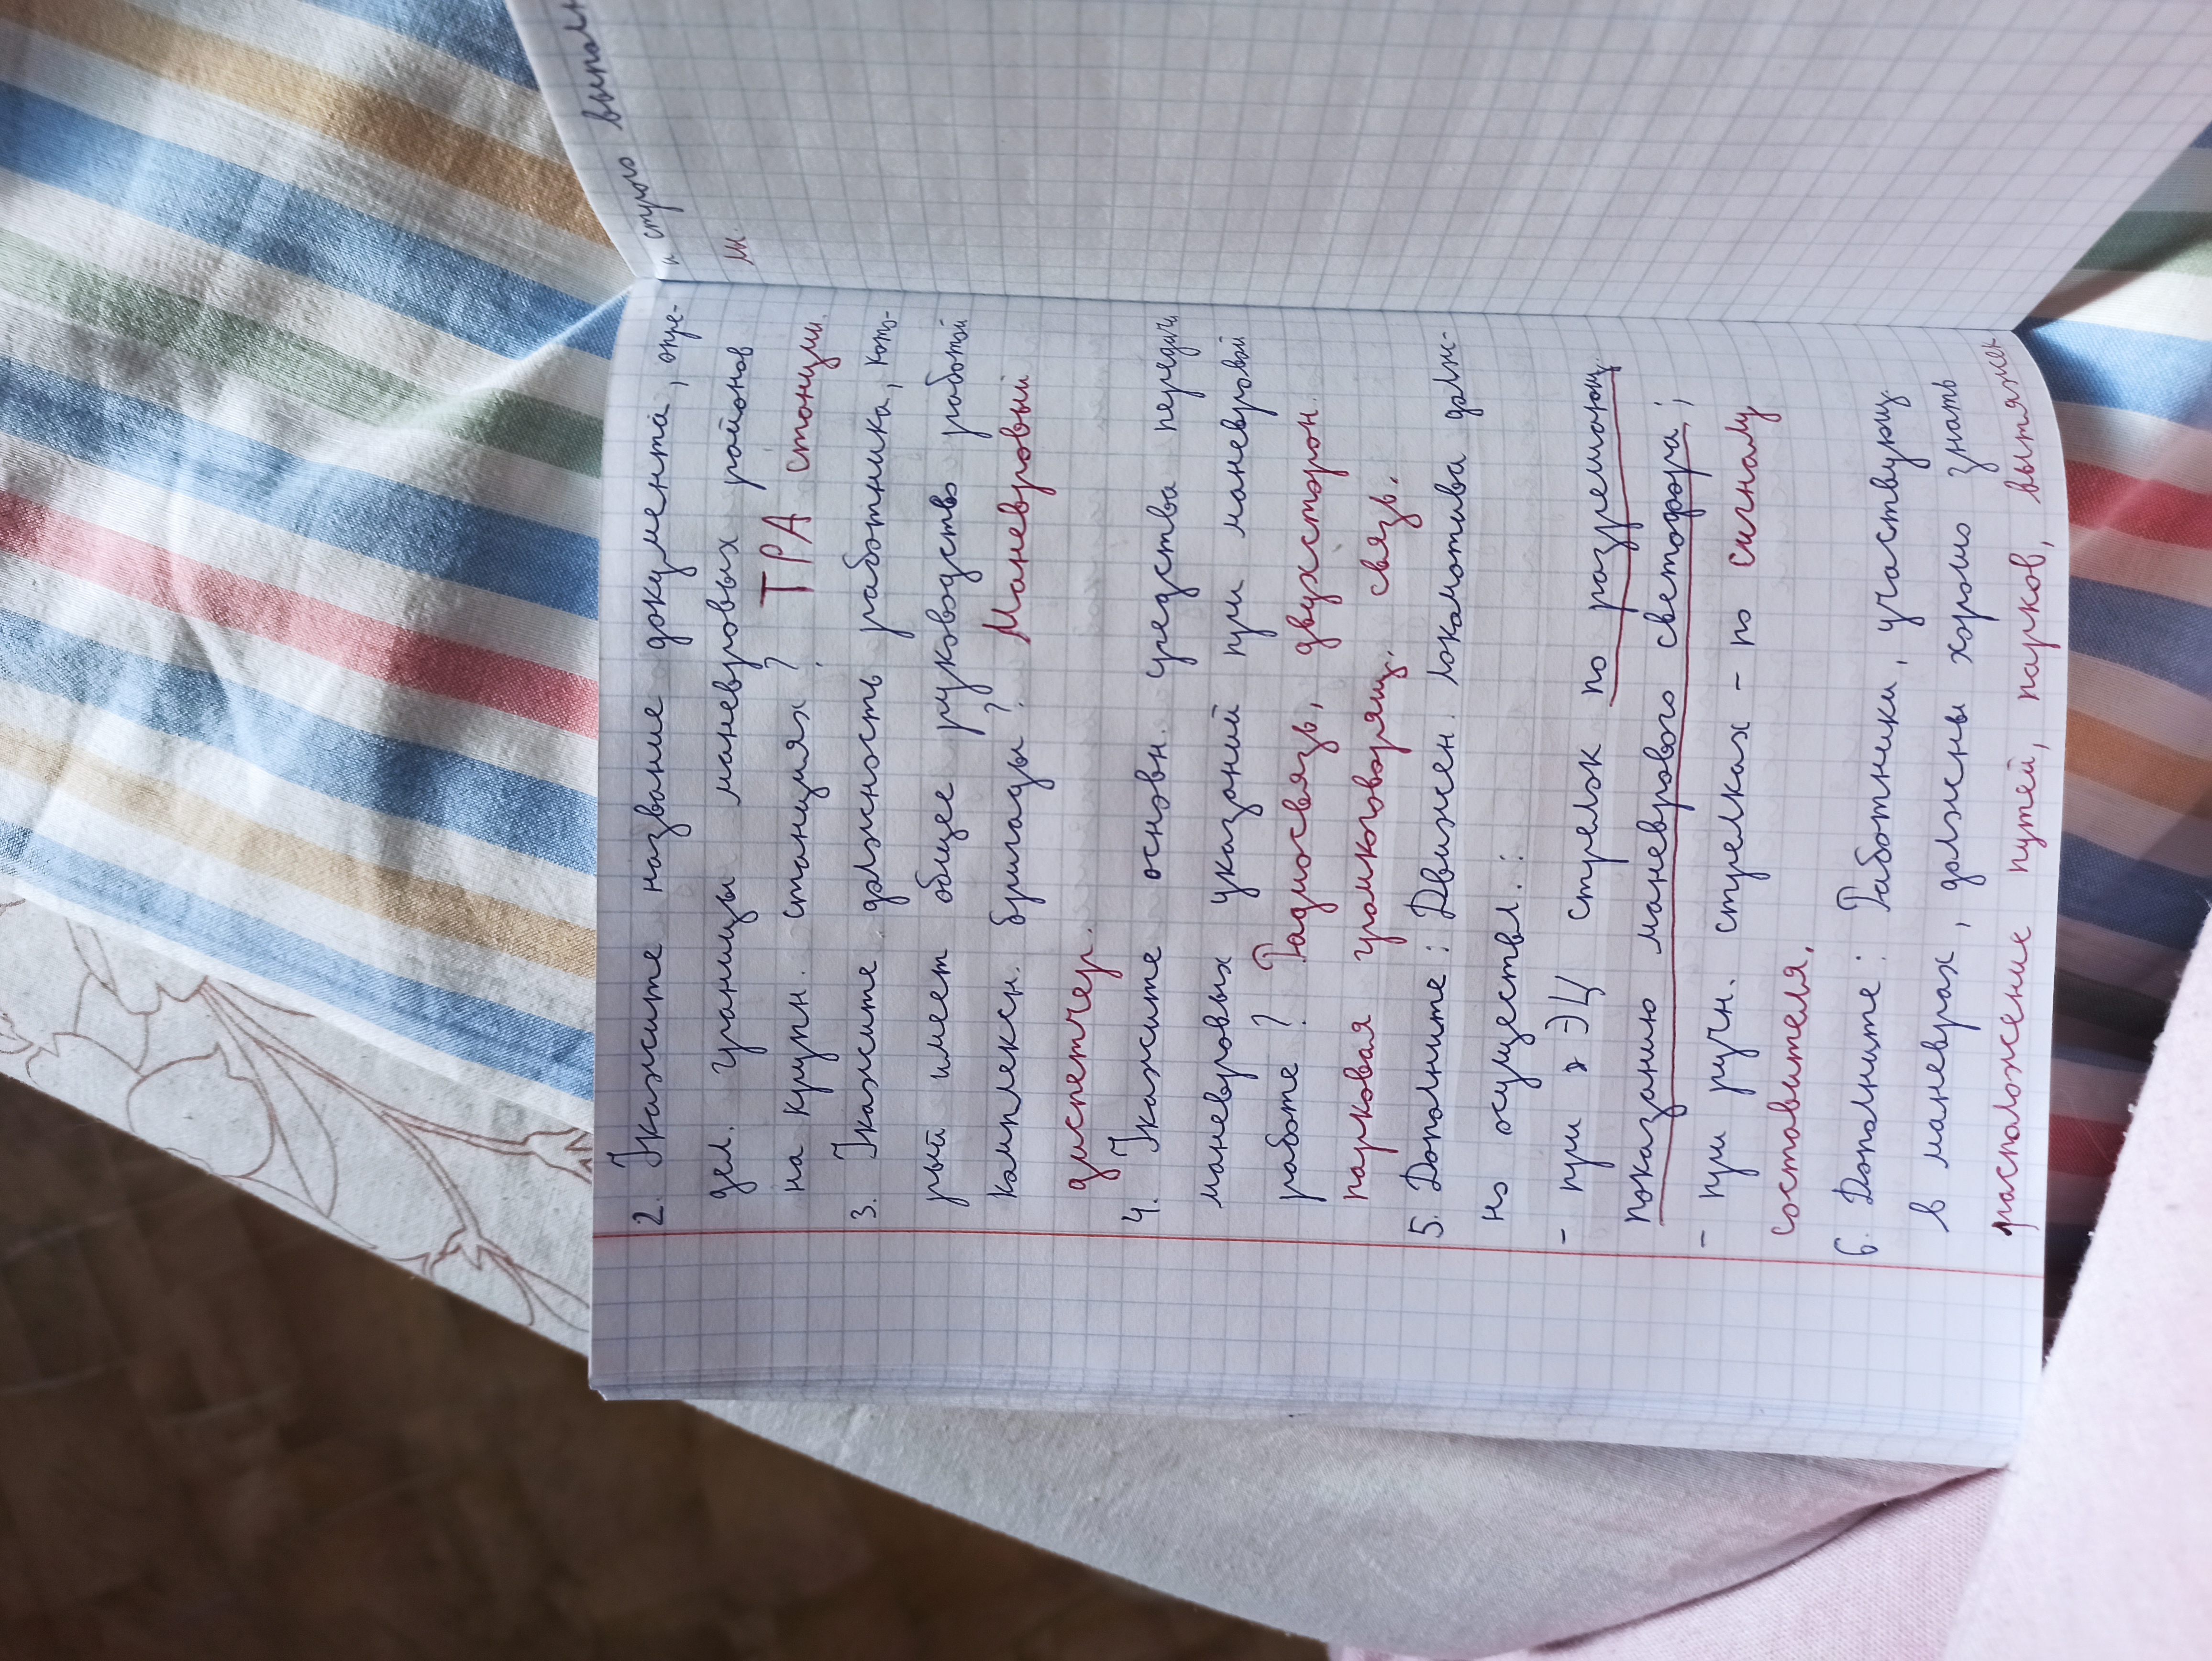 2. Укажите название документа, опре-
дел. границы маневровых районов
на крупн. станциях? ТРА станции.
3. Укажите должность работника, кото-
рый имеет общее руководство работой
комплексн. бригады? Маневровый
диспетчер.
4. Укажите основн. средства передачи
маневровых указаний при маневровой
работе? Радиосвязь, двухсторон.
парковая громкоговорящ. связь.
5. Дополните: Движен. локомотива долж-
но осуществл.:
- при ЭЦ стрелок по разрешающ.
показанию маневрового светофора;
- при ручн. стрелках - по сигналу
составителя.
6. Дополните: Работники, участвующ.
в маневрах, должны хорошо знать
расположение путей, парков, вытяжек
и строго выполн